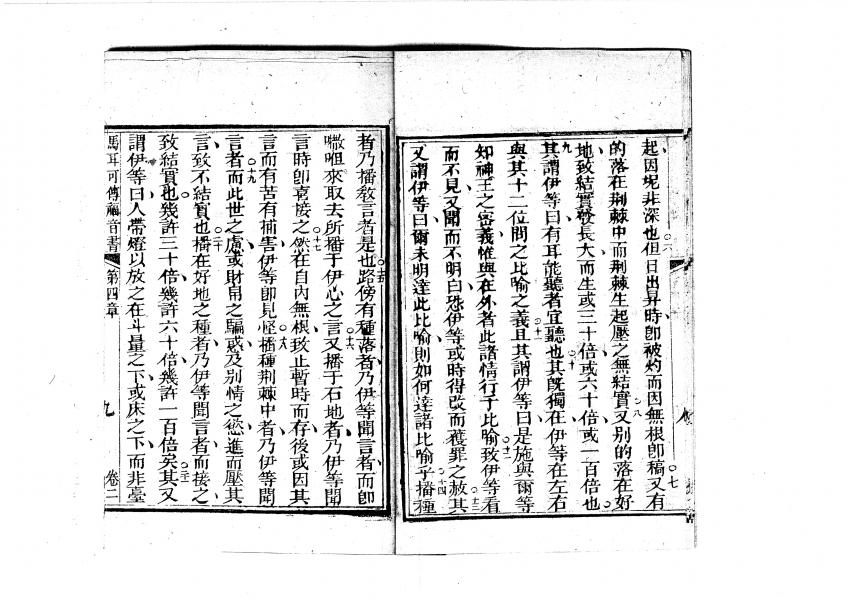 起因坭非深也但日出昇時卽被灼而因無根卽稿又有
的落在荆棘中而荆棘生起壓之無結實又別的落在好
地致結實發長大而生或三十倍或六十倍或一百倍也
其謂伊等曰有耳能聽者宜聽也其旣獨在伊等在左右
與其十二位問之比喻之義且其謂伊等曰是施與爾等
知神王之密義惟與在外者此諸情行于比喻致伊等看
而不見又聞而不明白恐伊等或時得改而獲罪之赦其
又謂伊等曰爾未明達此比喻則如何達諸比喻乎播種
者乃播敎言者是也路傍有種落者乃伊等聞言者而卽
㘔呾來取去所播于伊心之言又播于石地者乃伊等聞
言時卽喜接之然在自內無根致止暫時而存後或因其
言而有苦有捕害伊等卽見怪播種荆棘中者乃伊等聞
言者而此世之慮或財帛之騙惑及別情之慾進而壓其
言致不結實也播在好地之種者乃伊等聞言者而接之
致結實也幾許三十倍幾許六十倍幾許一百倍矣其又
謂伊等曰人帶燈以放之在斗量之下或床之下而非臺
馬耳可傳福音書 第四章 九 卷二